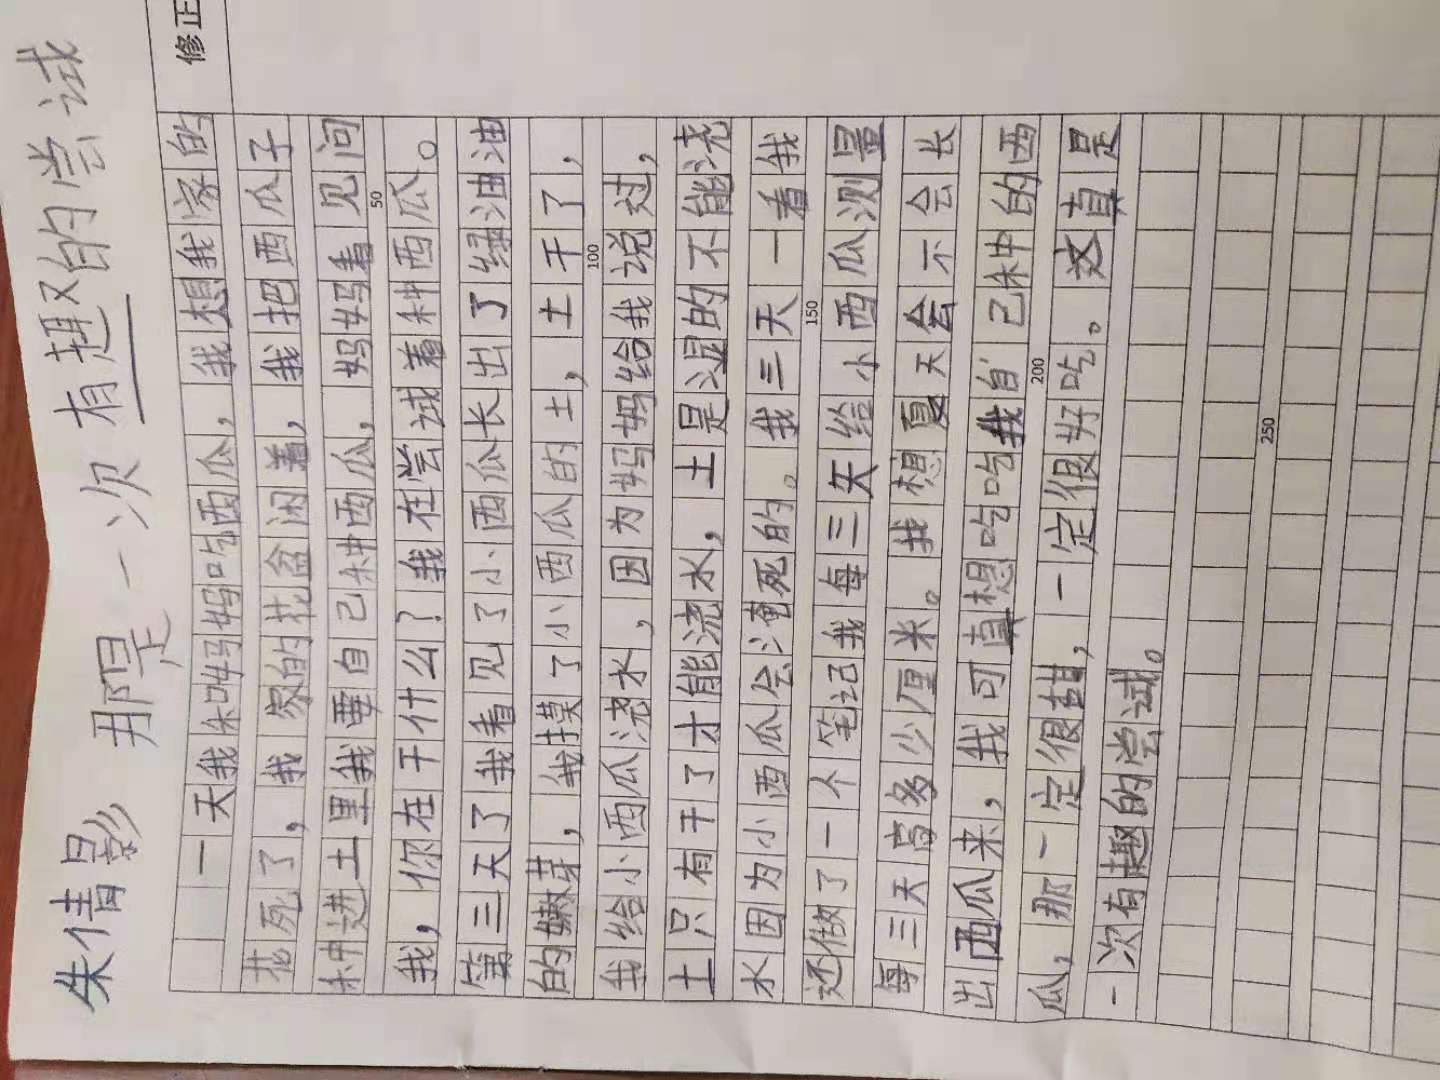 朱倩影 那是一次有趣的尝试
修正
一天我和妈妈吃西瓜，我想我家的
花死了，我家的花盆闲着，我把西瓜子
种进土里我要自己种西瓜，妈妈看见问
50
我，你在干什么？我在尝试着种西瓜。
第三天了我看见了小西瓜长出了绿油油
的嫩芽，我摸了小西瓜的土，土干了，
100
我给小西瓜浇水，因为妈妈给我说过，
土只有干了才能浇水，土是湿的不能浇
水因为小西瓜会淹死的。我三天一看我
150
还做了一个笔记我每三天给小西瓜测量
每三天高多少厘米。我想夏天会不会长
出西瓜来，我可真想吃吃我自己种的西
200
瓜，那一定很甜，一定很好吃。这真是
一次有趣的尝试。
250